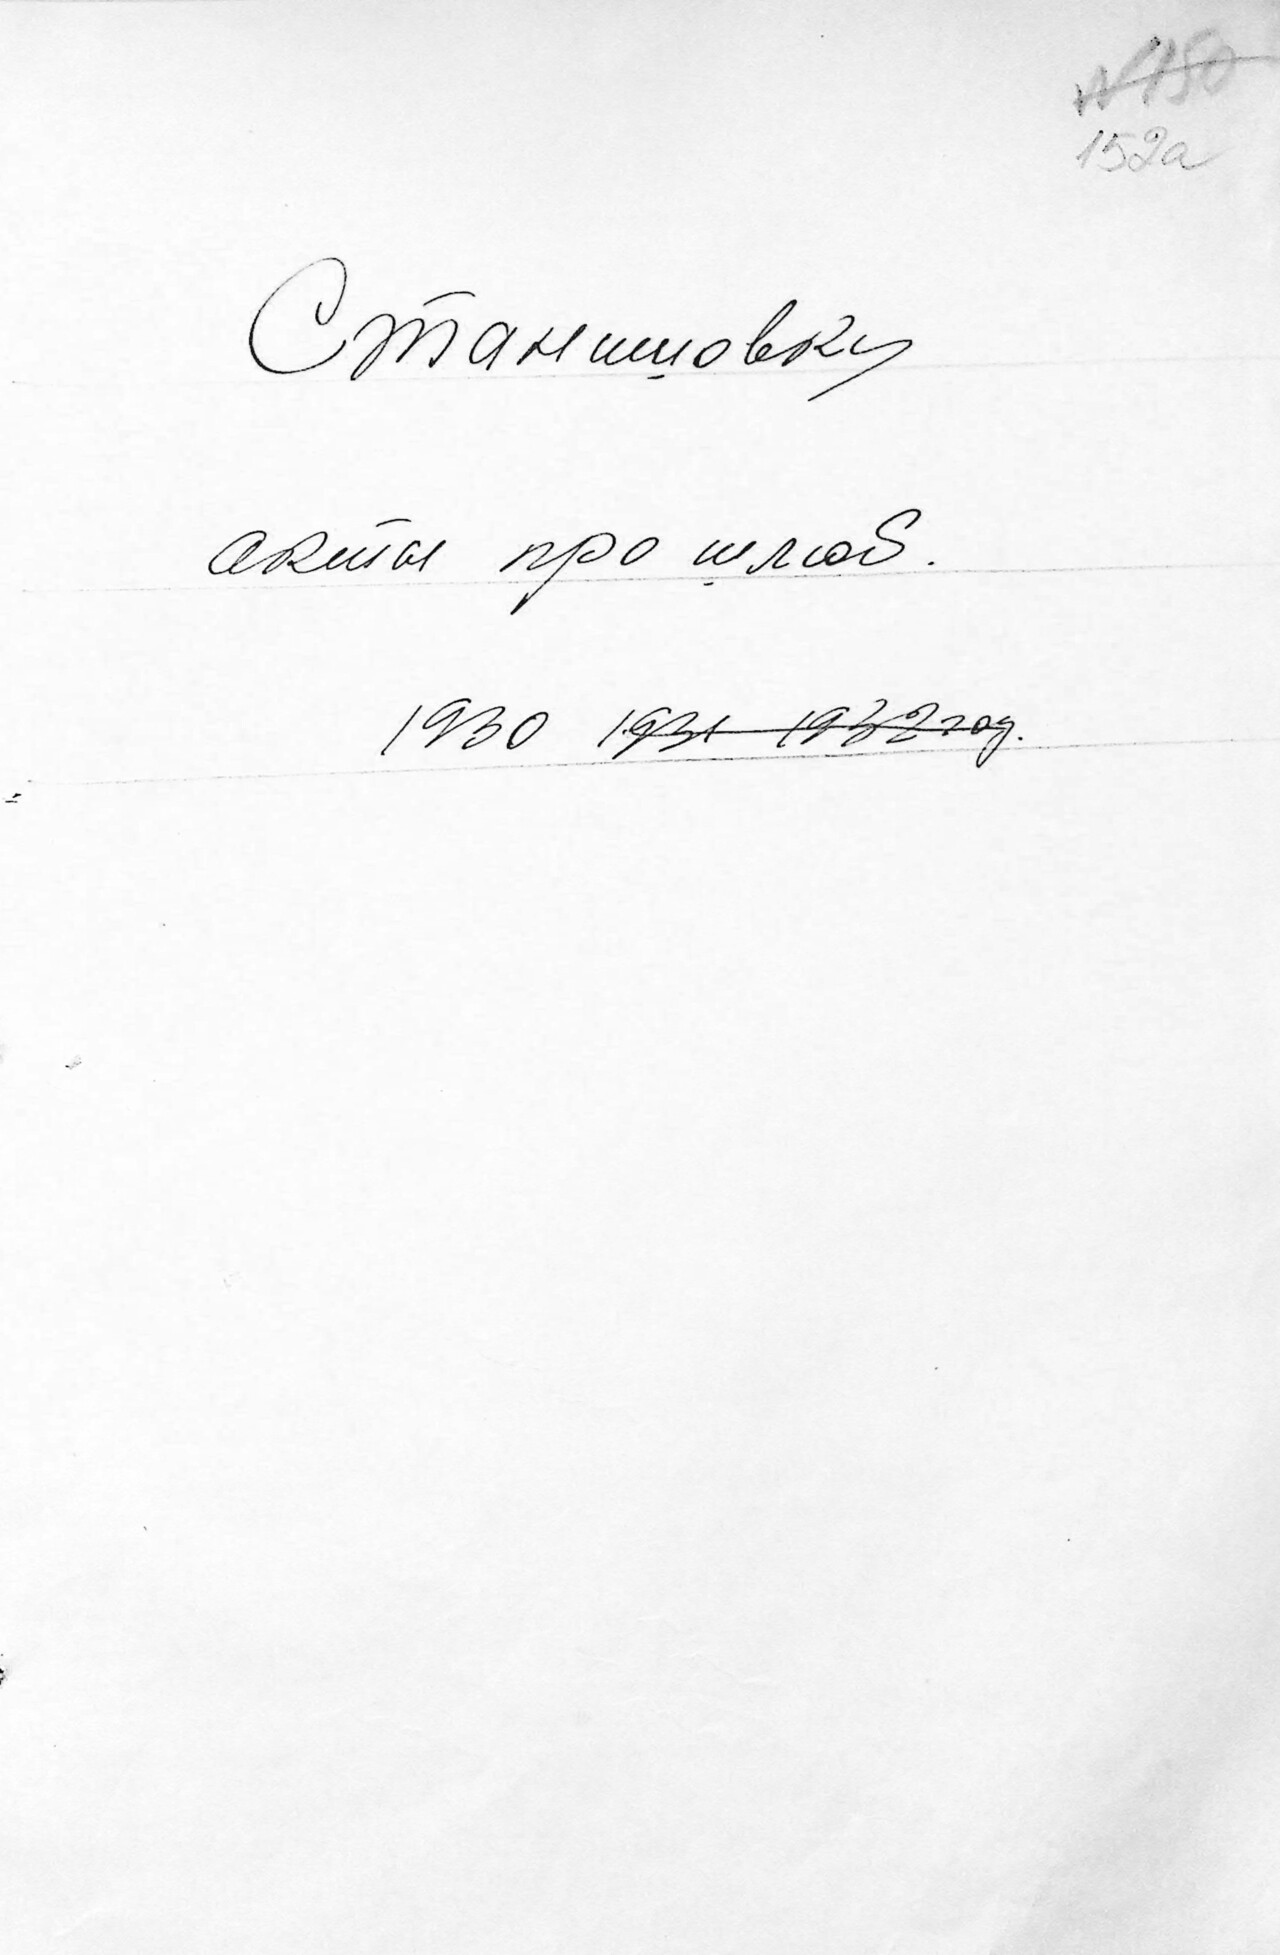 № 150
152а
Станишовку
акты про шлюб.
1930 1931 1932 год.